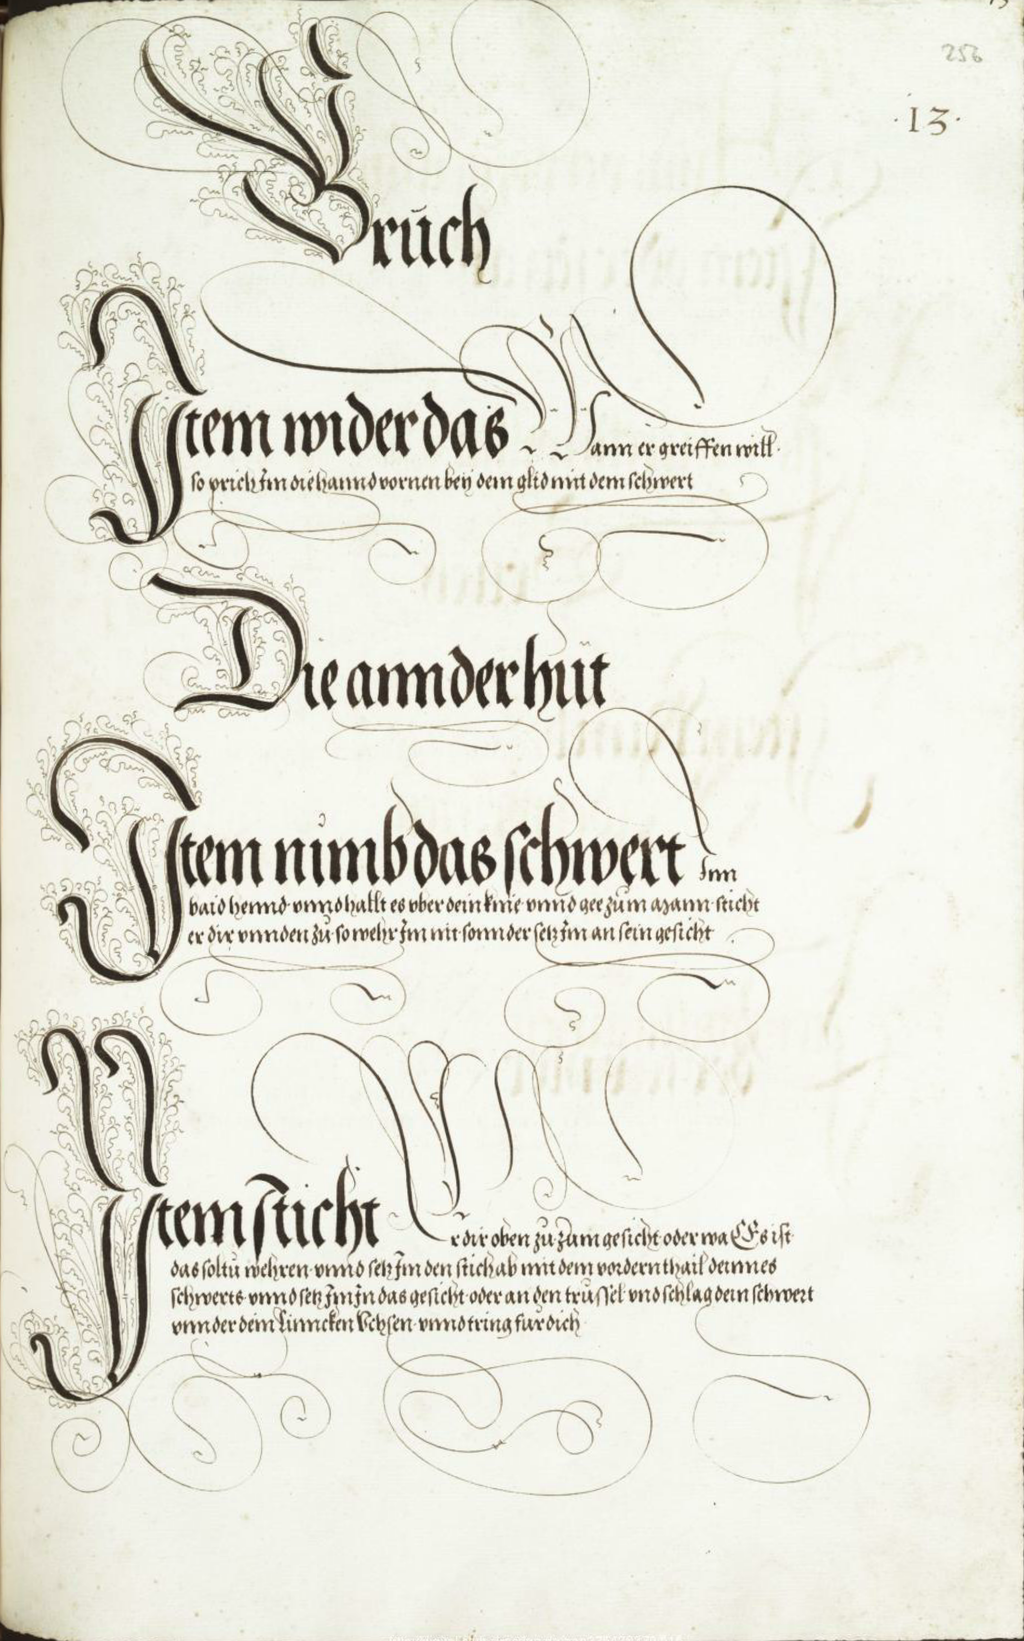 256
·13·
Bruch
Item wider das Wann er greiffen will·
so prich Im die hannd vornen bey dem glid mit dem schwert
Die annder hut
Item nimb das schwert Inn
baid hennd· vnnd hallt es vber dein knie· vnnd gee zum Mann· sticht
er dir vnnden zu· so wehr Im nit sonnder setz Im an sein gesicht
Item sticht Er dir oben zu Zum gesicht· oder wa Es ist·
das soltu wehren· vnnd setz Im den stich ab mit dem vordern thail deinnes
schwerts· vnnd setz Im In das gesicht· oder an den trussel· vnd schlag dein schwert
vnnder dein Linncken Vchsen· vnnd tring fur dich·